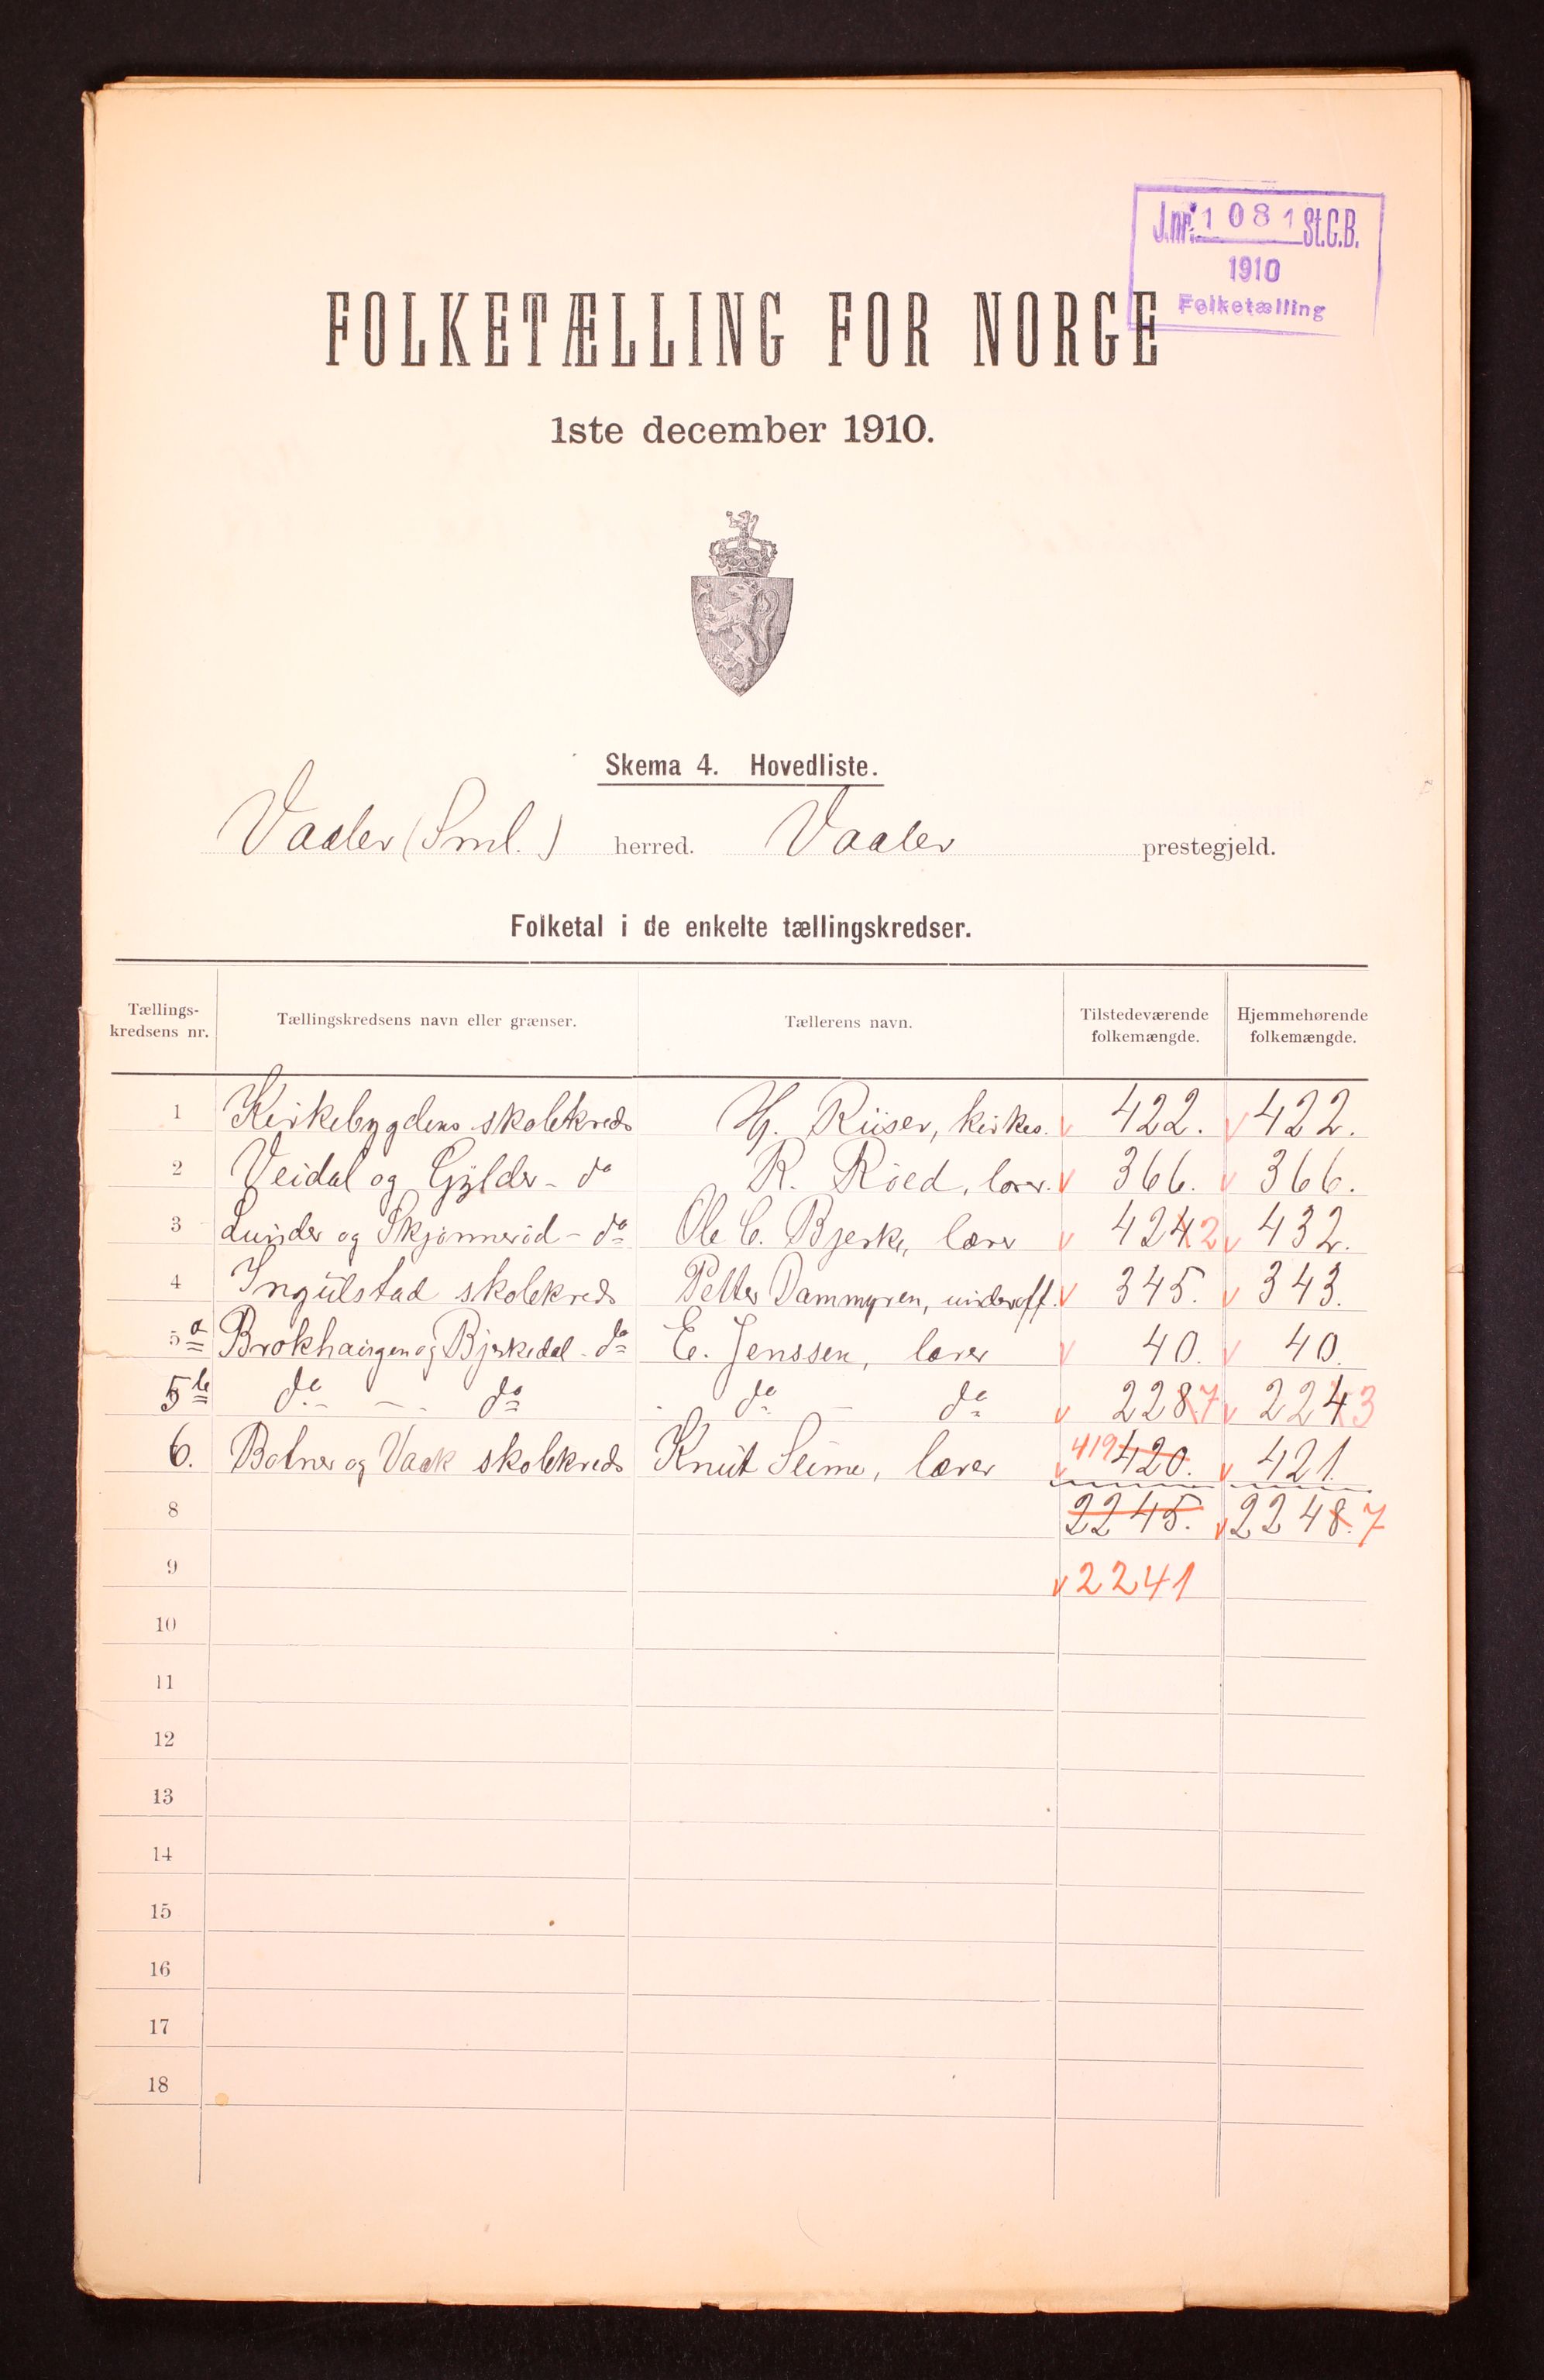 J.nr. 1081 St.C.B.
1910
Folketælling
FOLKETÆLLING FOR NORGE
1ste december 1910.
Skema 4. Hovedliste.
Vaaler (Sml.) herred. Vaaler prestegjeld.
Folketal i de enkelte tællingskredser.
Tællings-kredsens nr. Tællingskredsens navn eller grænser. Tællerens navn. Tilstedeværende folkemængde. Hjemmehørende folkemængde.
1 Kirkebygdens skolekreds Hj. Riiser, kirkes. v 422. v 422.
2 Veidal og Gylder - do R. Röed, lærer. v 366. v 366.
3 Lunder og Skjönneröd - do Ole C. Bjerke, lærer v 424 2 v 432.
4 Ingulstad skolekreds Petter Dammyren, underoff. v 345. v 343.
5a Brokhaugen og Bjerkedal - do E. Jenssen, lærer v 40. v 40.
5b do - do do - do v 228 7 v 224 3
6. Botner og Vaak skolekreds Knut Seime, lærer v 419 420. v 421.
8 2245. v 2248. 7
9 v 2241
10
11
12
13
14
15
16
17
18